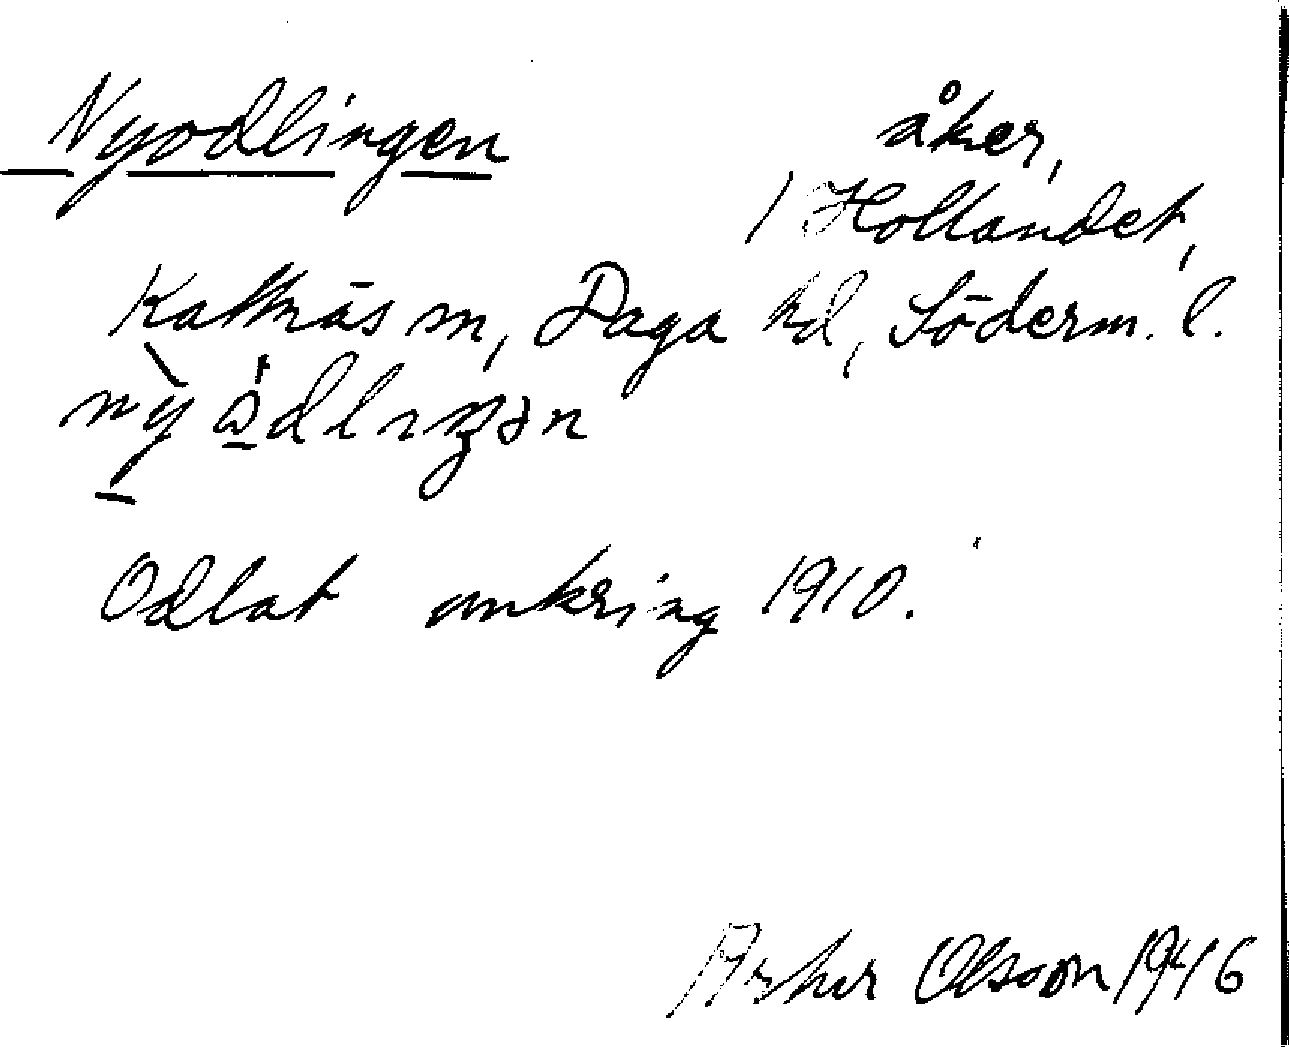 Nyodlingen åker,
1 Hollandet,
Kattnäs sn, Daga hd, Söderm. l.
Odlat omkring 1910.
Olsson 1946